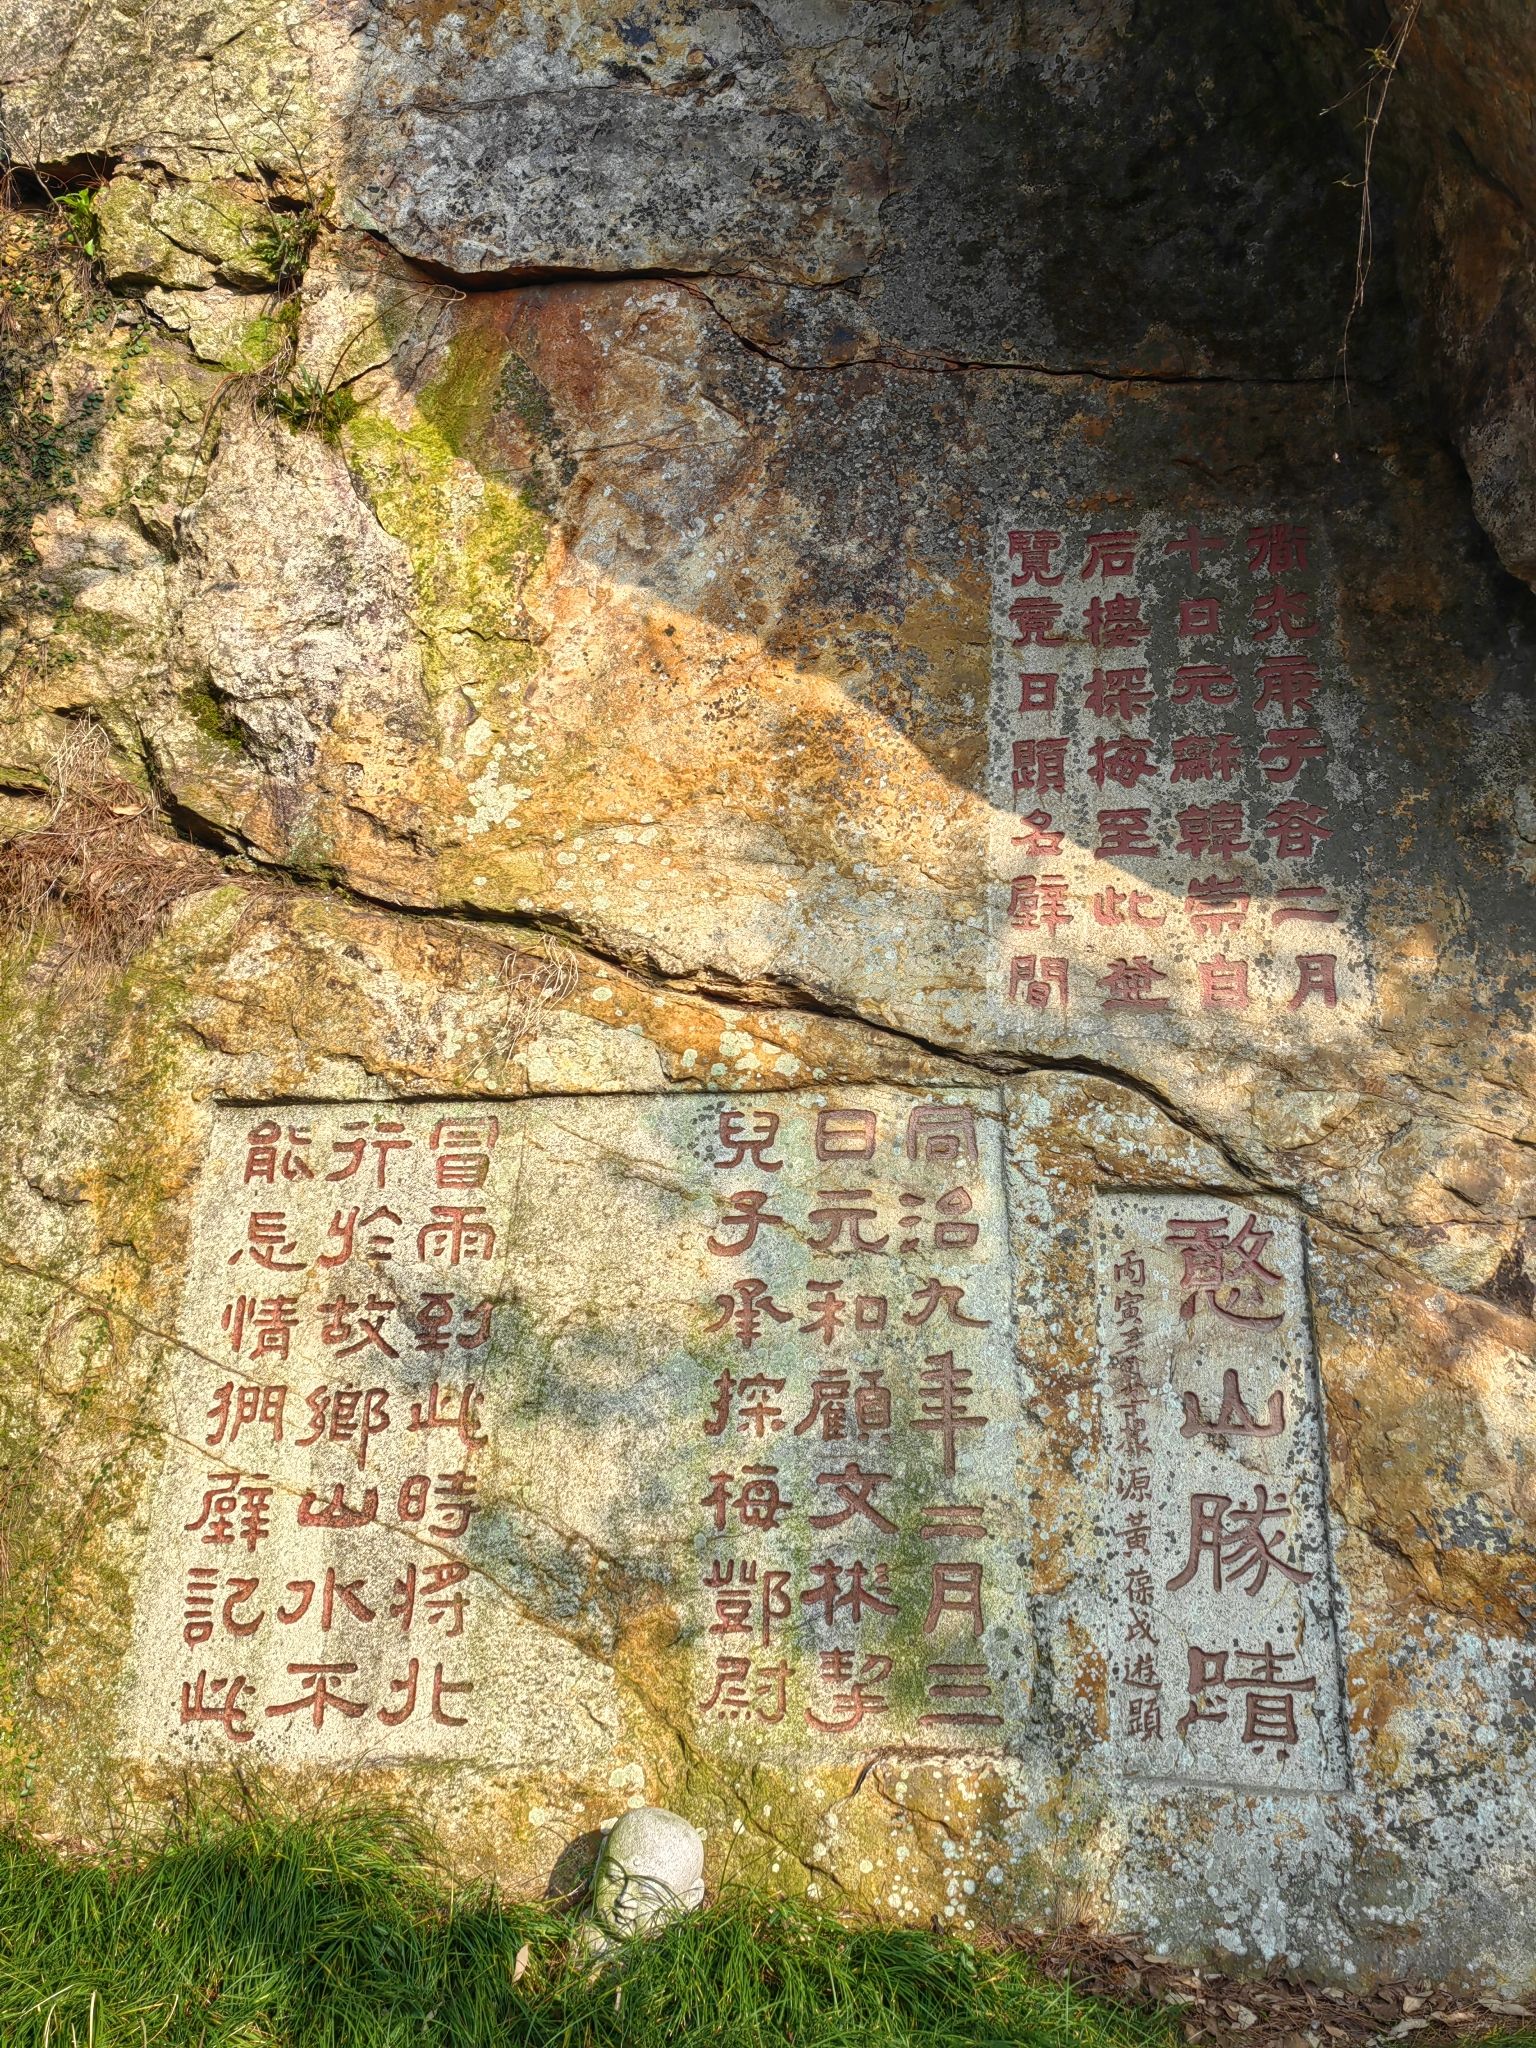 衜光庚子春二月
十日元龢韓崇自
后樓探梅至此並
覽竟日題名壁間
憨山勝蹟
丙寅 源黃葆戉遊題
同治九年二月三
日元和顧文彬挈
兒子承探梅鄧尉
冒雨到此時將北
行於故鄉山水不
能忘情捫壁記此